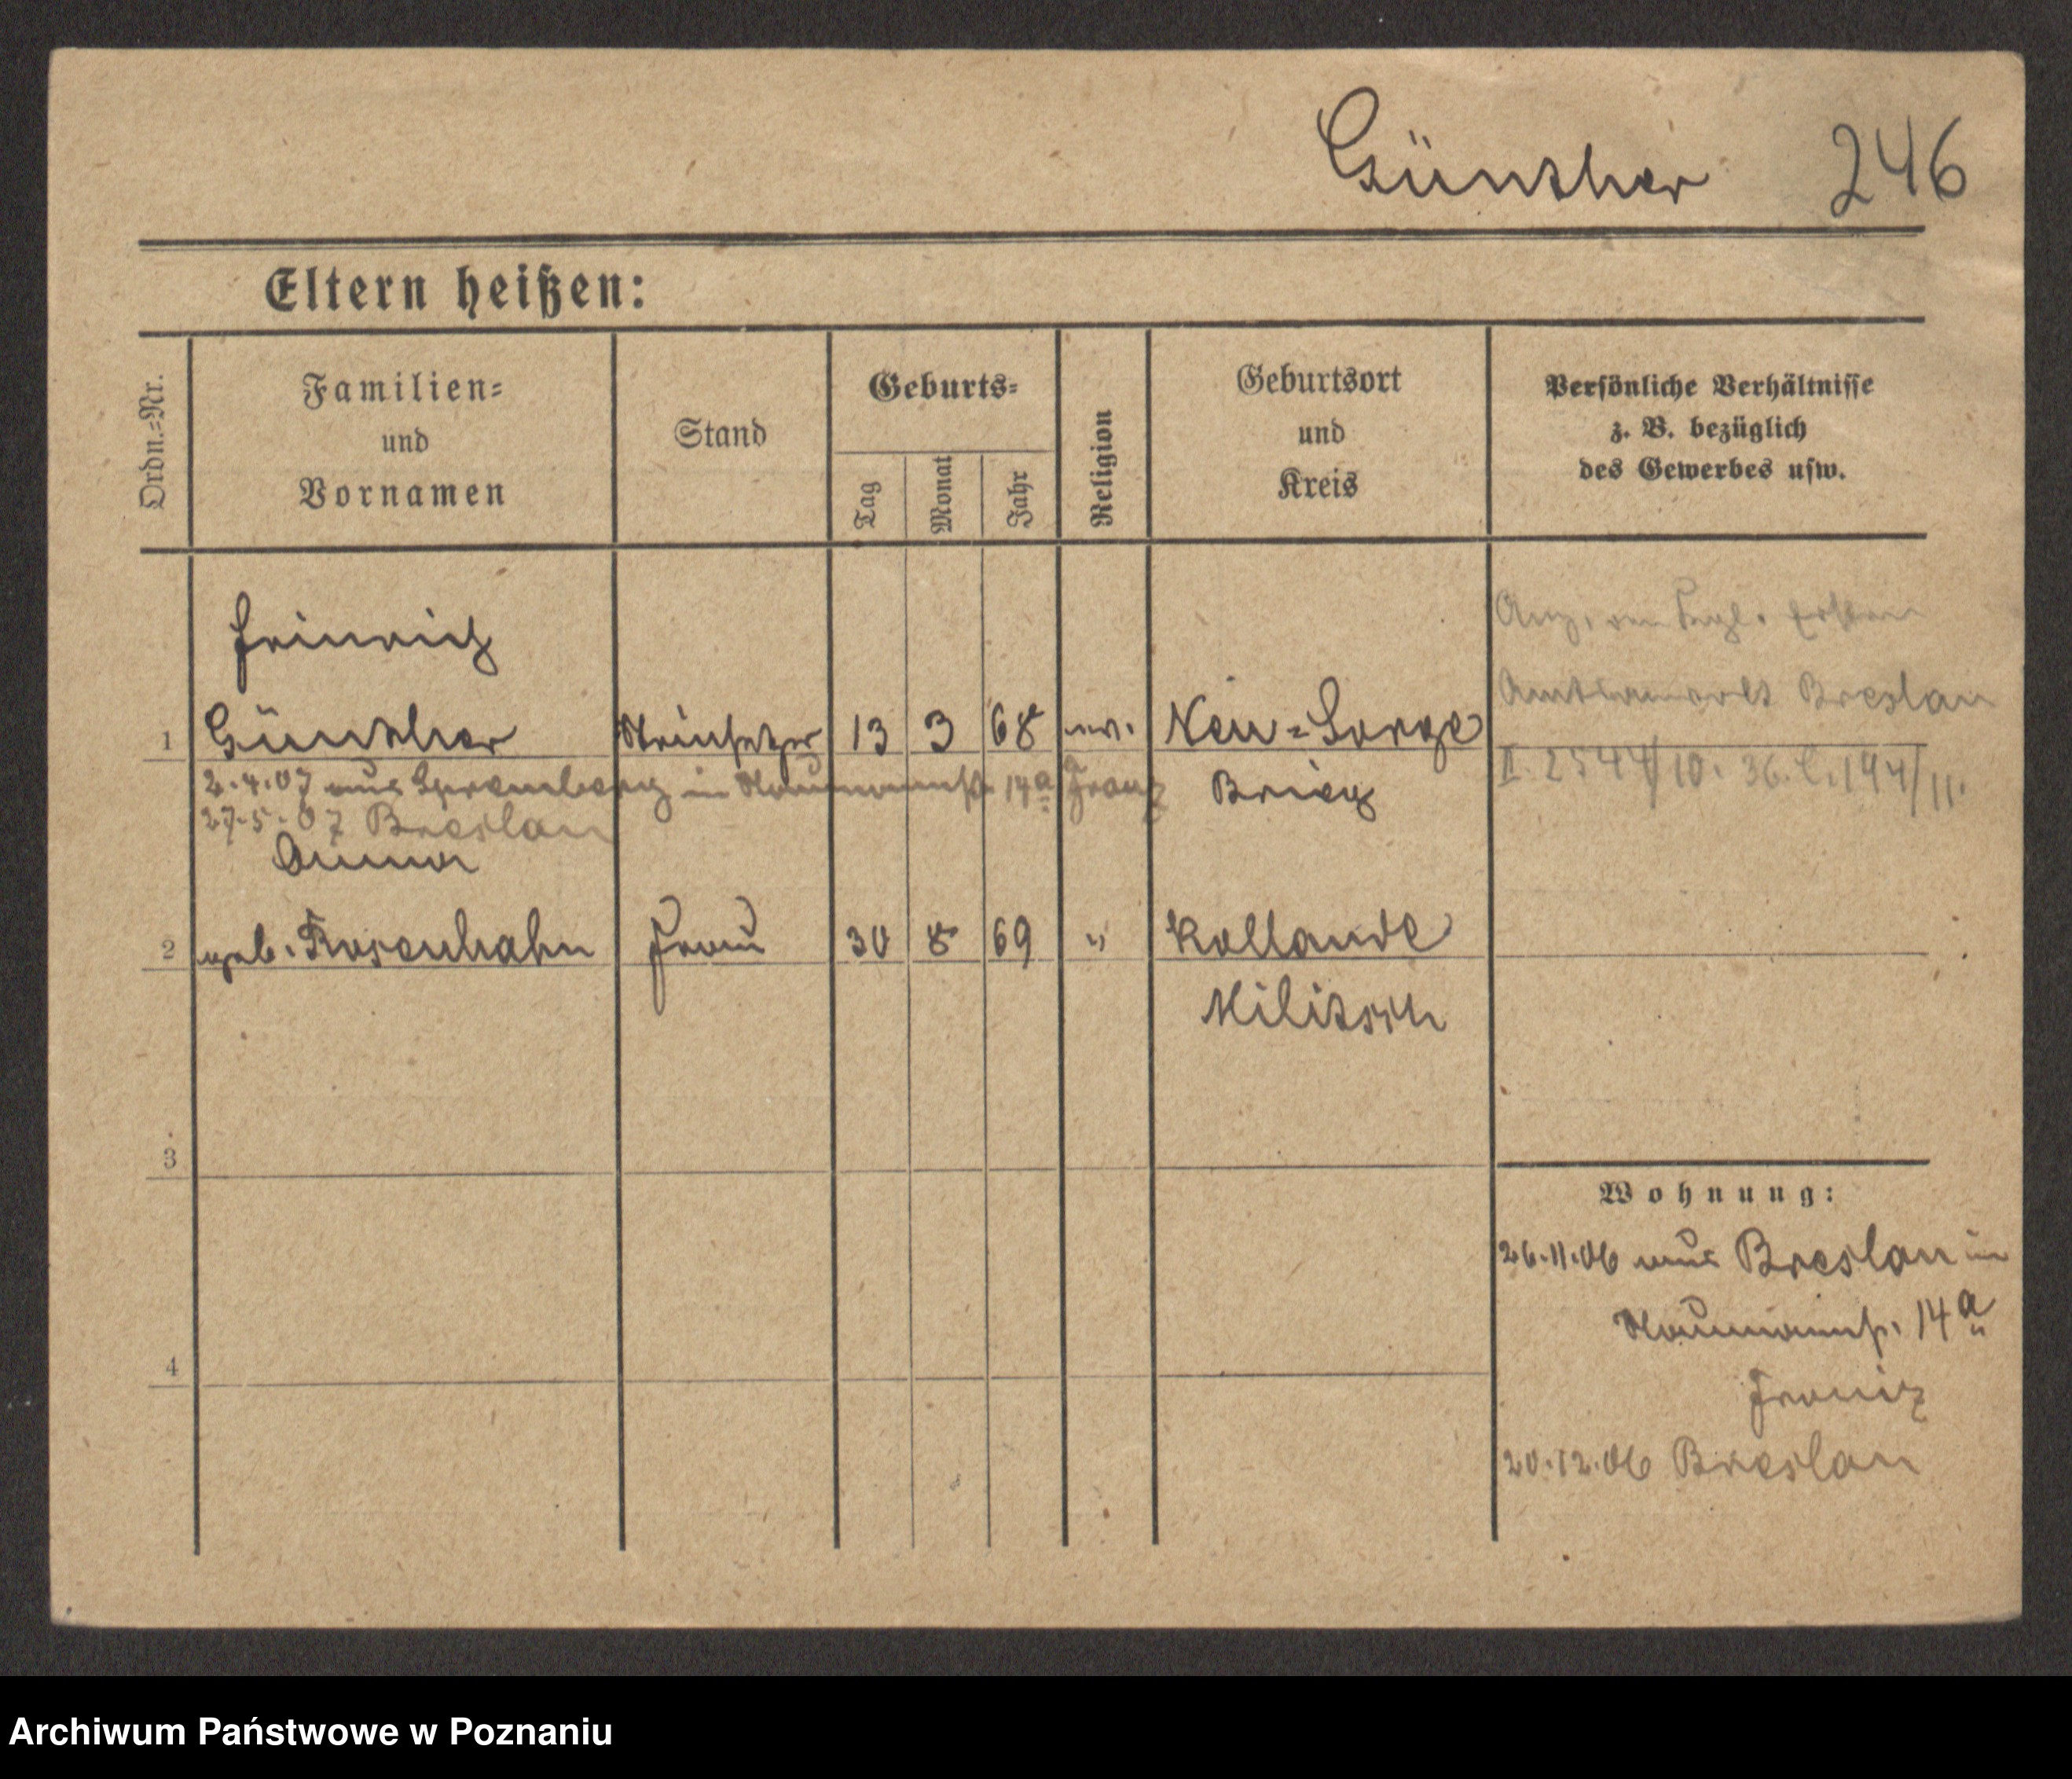 Günther 246
Eltern heißen:
Ordn.=Nr.
Familien=
und
Vornamen
Stand
Geburts=
Tag
Monat
Jahr
Religion
Geburtsort
und
Kreis
Persönliche Verhältnisse
z. B. bezüglich
des Gewerbes usw.
Heinrich
1 Günther Steinsetzer 13 3 68 ev. Neu=Sorge
Brieg
2.4.07 aus Spremberg in Naumannstr. 14a
27.5.07 Breslau
Anz.
Breslau
II. 2544/10. 36. C. 144/11.
Anna
2 geb. Rosenhahn Frau 30 8 69 " Kollande
Militsch
3
4
Wohnung:
26.11.06 aus Breslau in
Naumannstr. 14a
20.12.06 Breslau
Archiwum Państwowe w Poznaniu